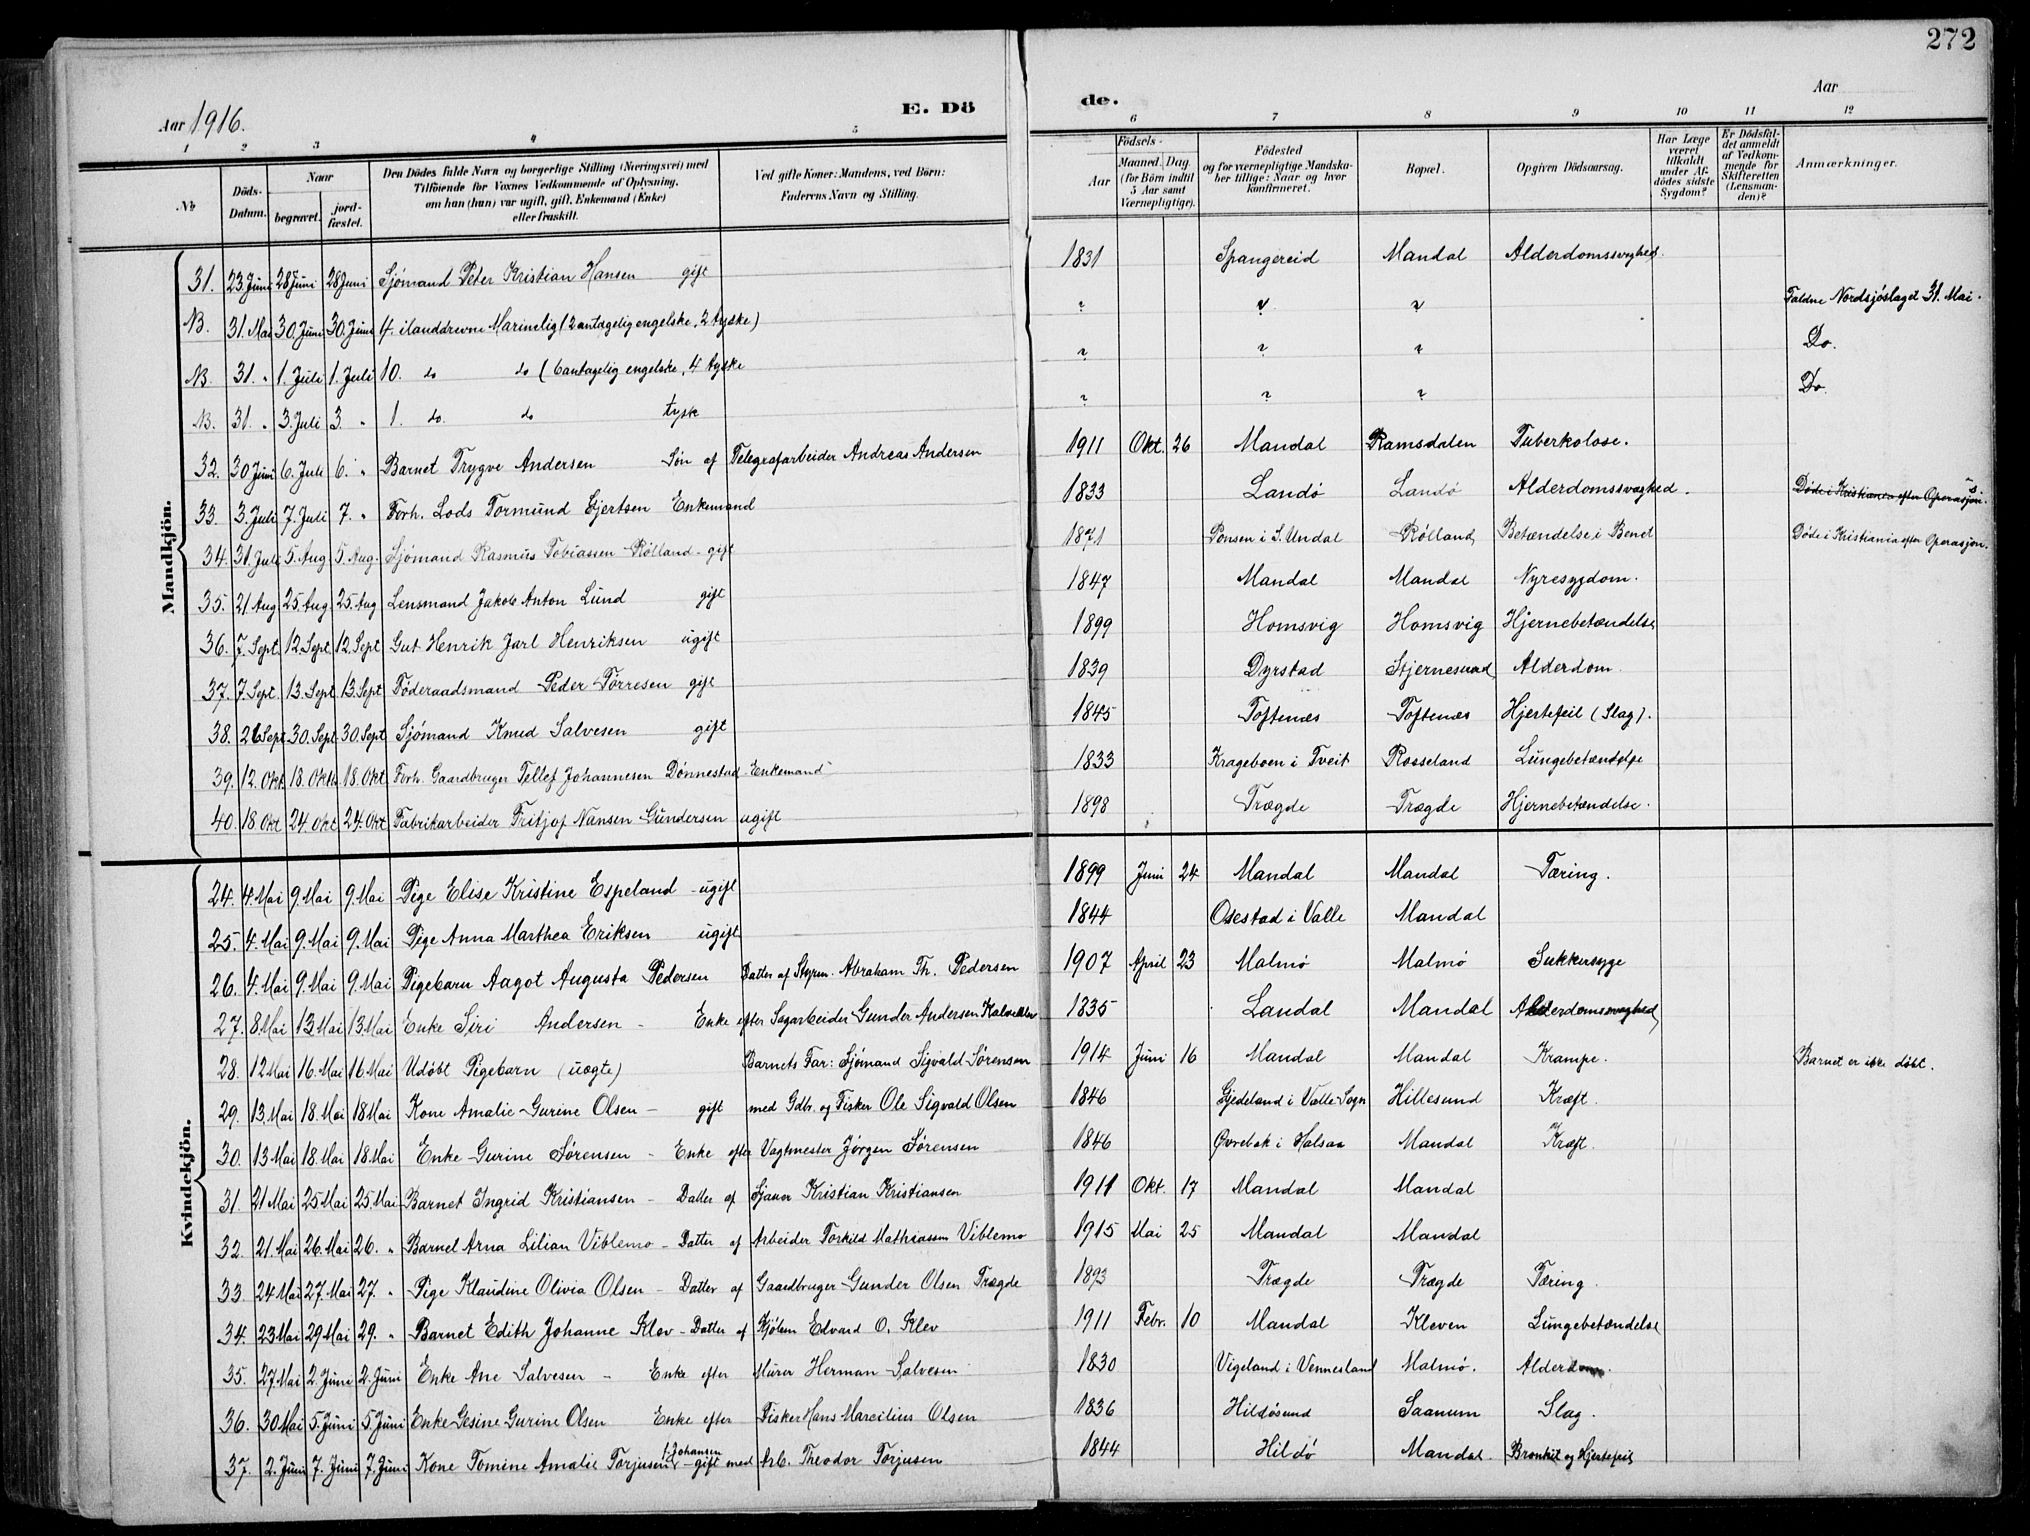 272
Aar 1916.
E. Dö
de.
Aar
1 2 3 4 5 6 7 8 9 10 11 12
No
Döds-Datum.
Naar
begravet.
jord-fæstet.
Den Dödes fulde Navn og borgerlige Stilling (Næringsvei) med
Tilföiende for Voxnes Vedkommende af Oplysning,
om han (hun) var ugift, gift, Enkemand (Enke)
eller fraskilt.
Ved gifte Koner: Mandens, ved Börn:
Faderens Navn og Stilling.
Födsels-
Aar
Maaned. Dag.
(for Börn indtil
5 Aar samt
Værnepligtige).
Födested
og for værnepligtige Mandska-
ber tillige: Naar og hvor
konfirmeret.
Bopæl.
Opgiven Dödsaarsag.
Har Læge
været
tilkaldt
under Af-
dödes sidste
Sygdom?
Er Dödsfal-
det anmeldt
af Vedkom-
mende for
Skifteretten
(Lensman-
den)?
Anmærkninger.
Mandkjön.
31. 23 Juni 28 Juni 28 Juni Sjömand Peter Kristian Hansen gift 1831 Spangereid Mandal Alderdomssvaghed.
N.B. 31. Mai 30 Juni 30. Juni 4. ilanddrevne Marinelig (2 antagelig engelske, 2 tyske) ? ? ? Faldne Nordsjöslaget 31. Mai.
N.B. 31. " 1. Juli 1. Juli 10. do do (6 antagelig engelske, 4 tyske ? ? ? Do.
N.B. 31. " 3. Juli 3. " 1. do. do tysk ? ? ? Do.
32. 30 Juni 6. Juli 6. " Barnet Trygve Andersen Sön af Telegrafarbeider Andreas Andersen 1911 Okt. 26 Mandal Ramsdalen Tuberkolose.
33. 3. Juli 7. Juli 7. " Forh. Lods Tormund Gjertsen Enkemand 1833 Landö Landö Alderdomssvaghed. Döde i Kristiania efter Operasjon.
34. 31. Juli 5. Aug. 5. Aug. Sjömand Rasmus Tobiassen Rölland - gift 1871 Ponsen i S. Undal Rölland Betændelse i Benet Döde i Kristiania efter Operasjon.
35. 21 Aug 25. Aug. 25. Aug Lensmand Jakob Anton Lund gift 1847 Mandal Mandal Nyresygdom.
36. 7. Sept 12. Sept 12. Sept Gut Henrik Jarl Henriksen ugift 1899 Homsvig Homsvig Hjernebetændelse
37. 7. Sept. 13. Sept 13. Sept Föderaadsmand Peder Törresen gift 1839 Dyrstad Stjernesund Alderdom.
38. 26 Sept. 30. Sept. 30. Sept Sjömand Knud Salvesen gift 1845 Toftenæs Toftenæs Hjertefeil (Slag).
39. 12. Okt. 18. Okt. 18. Okt Forh. Gaardbruger Tellef Johannesen Dönnestad Enkemand 1833 Krageboen i Tveit Rosseland Lungebetændelse
40. 18 Okt 24. Okt 24. Okt Fabrikarbeider Fritjof Nansen Gundersen ugift 1898 Trægde Trægde Hjernebetændelse.
Kvindekjön.
24. 4. Mai 9. Mai 9. Mai Pige Elise Kristine Espeland - ugift 1899 Juni 24 Mandal Mandal Tæring.
25. 4. Mai 9. Mai 9. Mai Pige Anna Marthea Eriksen ugift 1844 Osestad i Valle Mandal
26. 4. Mai 9. Mai 9. Mai Pigebarn Aagot Augusta Pedersen Datter af Styrm. Abraham Th. Pedersen 1907 April 23 Malmö Malmö Sukkersyge
27. 8. Mai 13 Mai 13. Mai Enke Siri Andersen - Enke efter Sagarbeider Gunder Andersen 1835 Landal Mandal Alderdomssvaghed
28. 12 Mai 16. Mai 16 Mai Udöbt Pigebarn (uægte) Barnets Far: Sjömand Sigvald Sörensen 1914 Juni 16 Mandal Mandal Krampe. Barnet er ikke döbt.
29. 13. Mai 18. Mai 18 Mai Kone Amalie Gurine Olsen - gift med Gdbr. og Fisker Ole Sigvald Olsen 1846 Gjedeland i Valle Sogn Hillesund Kræft.
30. 13 Mai 18. Mai 18. Mai Enke Gurine Sörensen - Enke efter Vagtmester Jörgen Sörensen 1846 Övrebök i Halsaa Mandal Kræft.
31. 21 Mai 25 Mai 25. Mai Barnet Ingrid Kristiansen - Datter af Sjauer Kristian Kristiansen 1911 Okt. 17 Mandal Mandal
32. 21. Mai 26. Mai 26. " Barnet Arna Lilian Viblemo - Datter af Arbeider Torkild Mathiassen Viblemo 1915 Mai 25 Mandal Mandal
33. 24 Mai 27 Mai 27. " Pige Klaudine Olivia Olsen - Datter af Gaardbruger Gunder Olsen Trægde 1893 Trægde Trægde Tæring.
34. 23 Mai 29 Mai 29. " Barnet Edith Johanne Klev - Datter af Edvard O. Klev 1911 Febr. 10 Mandal Kleven Lungebetændelse
35. 27. Mai 2. Juni 2. Juni Enke Ane Salvesen - Enke efter Murer Herman Salvesen 1830 Vigeland i Vennesland Malmö. Alderdom.
36. 30 Mai 5. Juni 5 Juni Enke Gesine Gurine Olsen Enke efter Fisker Hans Marcilius Olsen 1836 Hildösund Saanum Slag.
37. 2. Juni 7. Juni 7. Juni Kone Tomine Amalie Torjusen f. Johansen - gift med Arb. Theodor Torjusen 1844 Hildö Mandal. Bronkit og Hjertefeil